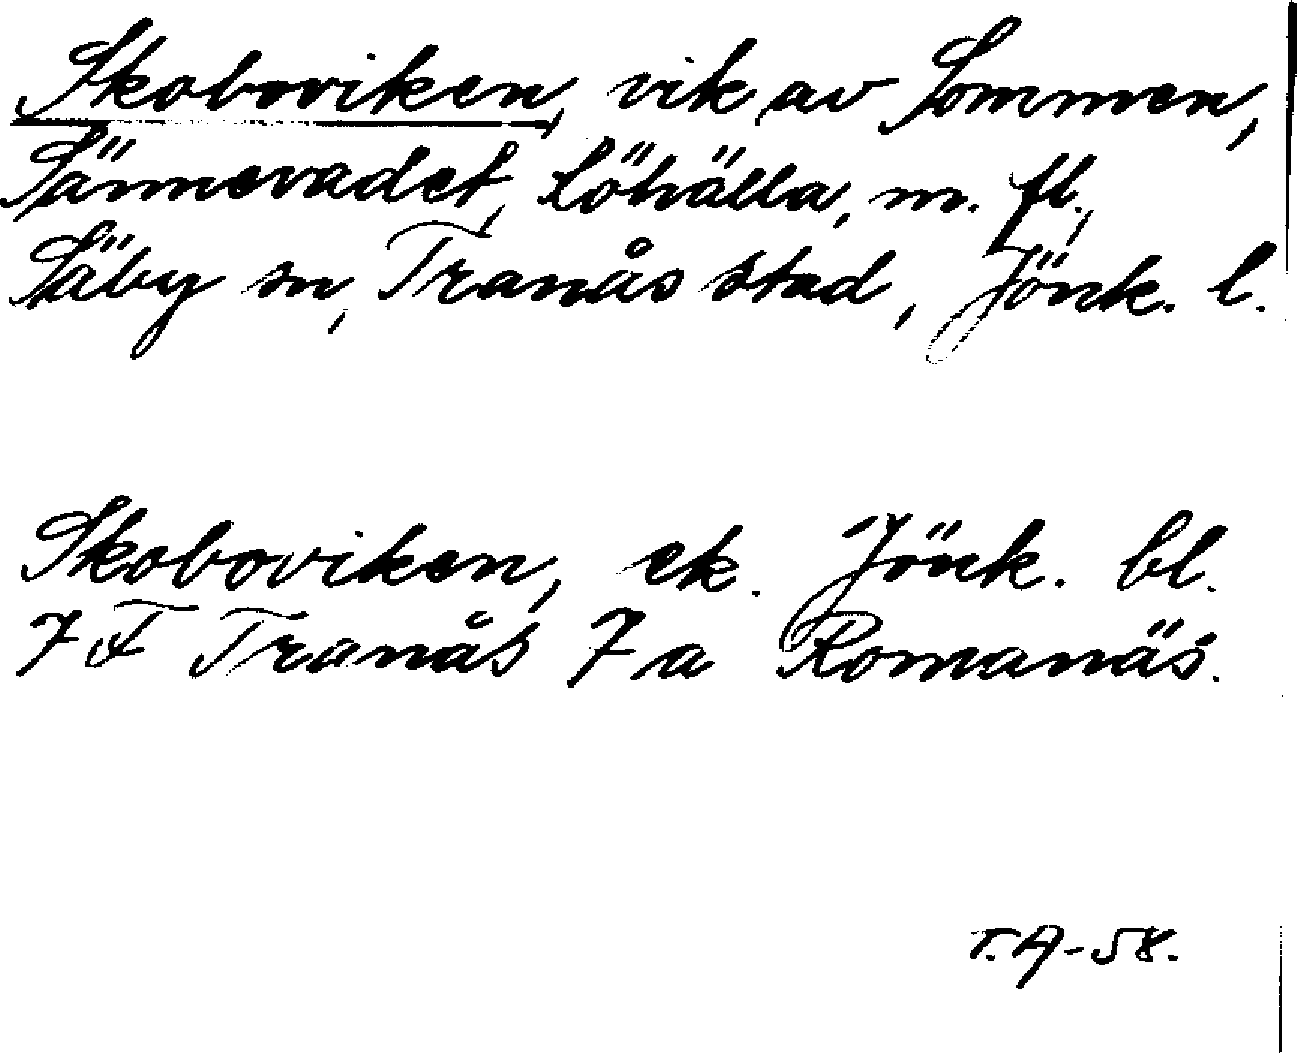 Skoboviken, vik av Sommen,
Sännevadet, Löhälla, m. fl.,
Säby sn, Tranås stad, Jönk. l.
Skoboviken, ek. Jönk. bl.
7 F Tranås 7 a Romanäs.
T. A-58.